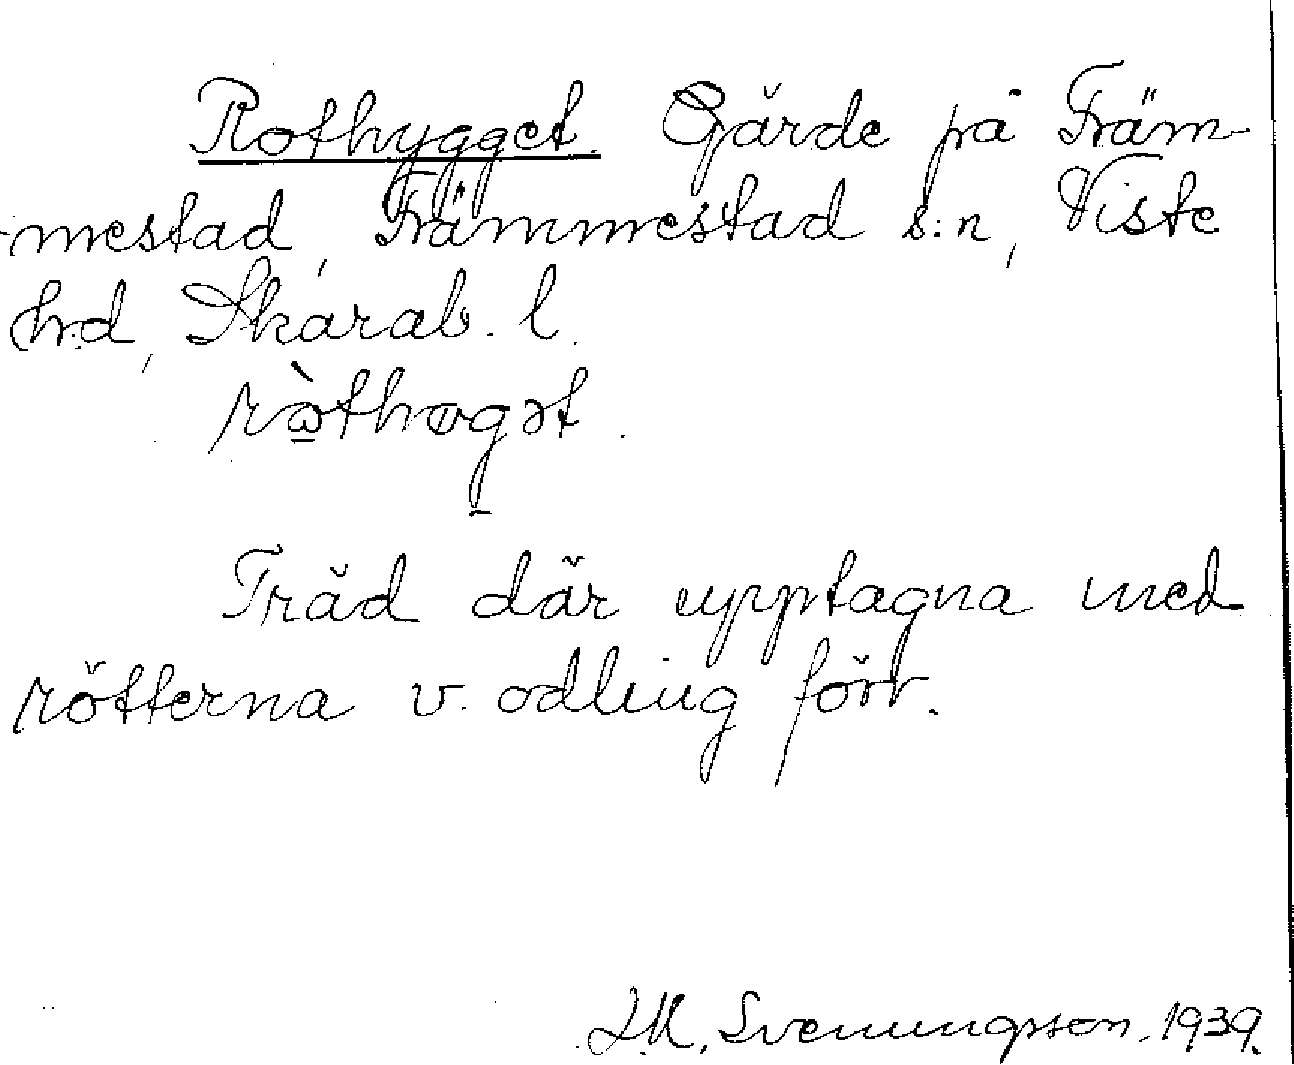 Rothygget. Gärde på Främ-
mestad, Främmestad s:n, Viste
hd, Skarab. l.
Träd där upptagna med
rötterna v. odling förr.
Svenungsson. 1939.